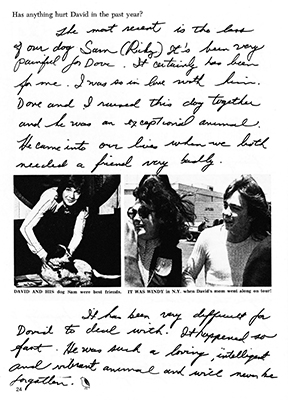 Has anything hurt David in the past year?
The most recent is the loss
of our dog Sam (Ricky) It's been very
painful for Dave. It certainly has been
for me. I was so in love with him.
Dave and I nursed this dog together
and he was an exceptional animal.
He came into our lives when we both
needed a friend very badly.
DAVID AND HIS dog Sam were best friends.
IT WAS WINDY in N.Y. when David's mom went along on tour!
It has been very difficult for
David to deal with. It happened so
fast. He was such a loving, intelligent
and vibrant animal and will never be
forgotten.
24